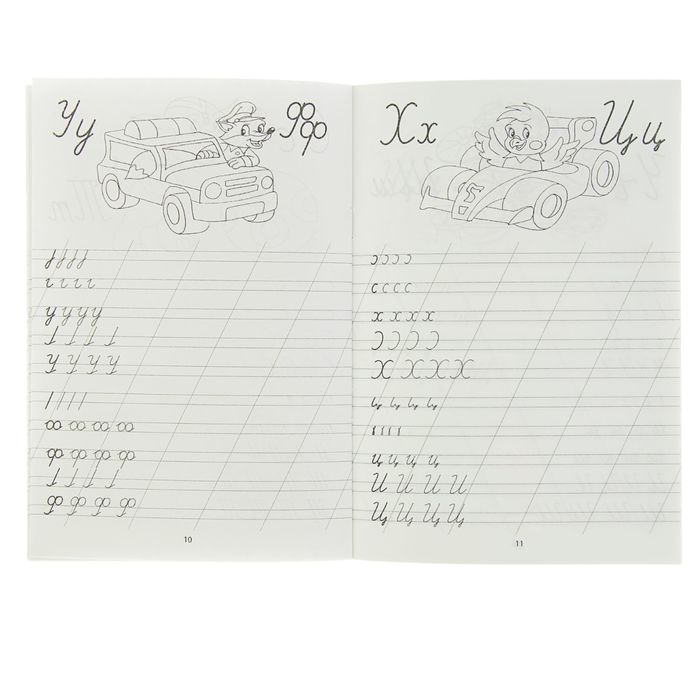 Уу Фф
у у у у
У У У У
ф ф ф ф
Ф Ф Ф Ф
10
Хх Цц
5
с с с с
х х х х
Х Х Х Х
ц ц ц ц
И И И И
Ц Ц Ц Ц
11